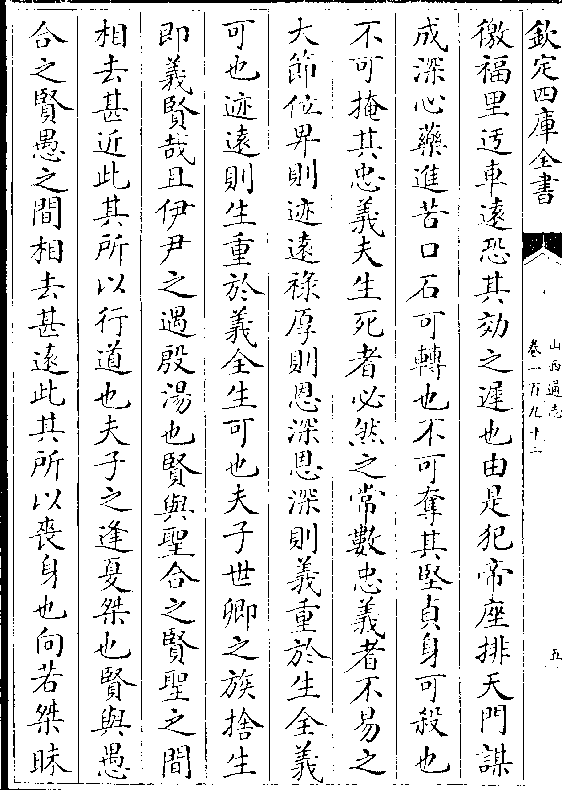 欽定四庫全書
山西通志
卷一百九十二
五
徼福里迃車遠恐其効之遲也由是犯帝座排天門謀
成深心藥進苦口石可轉也不可奪其堅貞身可殺也
不可掩其忠義夫生死者必然之常數忠義者不易之
大節位畀則迹遠祿厚則恩深恩深則義重於生全義
可也迹遠則生重於義全生可也夫子世卿之族捨生
即義賢哉且伊尹之遇殷湯也賢與聖合之賢聖之間
相去甚近此其所以行道也夫子之逢夏桀也賢與愚
合之賢愚之間相去甚遠此其所以喪身也向若桀昧